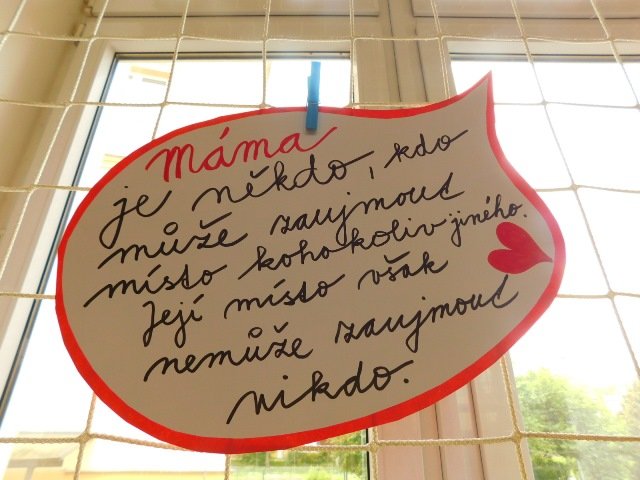 Máma
je někdo, kdo
může zaujmout
místo kohokoliv jiného.
Její místo však
nemůže zaujmout
nikdo.